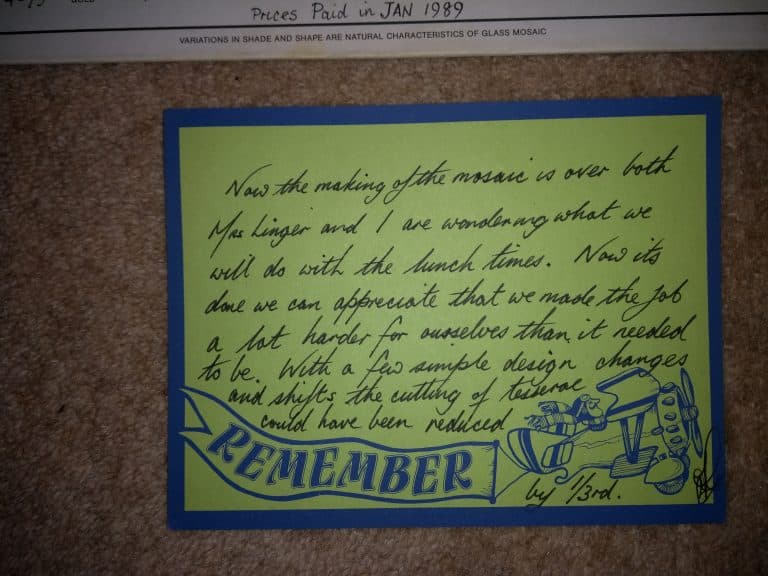 Prices Paid in JAN 1989
VARIATIONS IN SHADE AND SHAPE ARE NATURAL CHARACTERISTICS OF GLASS MOSAIC
Now the making of the mosaic is over both
Mrs Linger and I are wondering what we
will do with the lunch times. Now its
done we can appreciate that we made the job
a lot harder for ourselves than it needed
to be. With a few simple design changes
and shifts the cutting of tesserae
could have been reduced
REMEMBER
by 1/3rd.